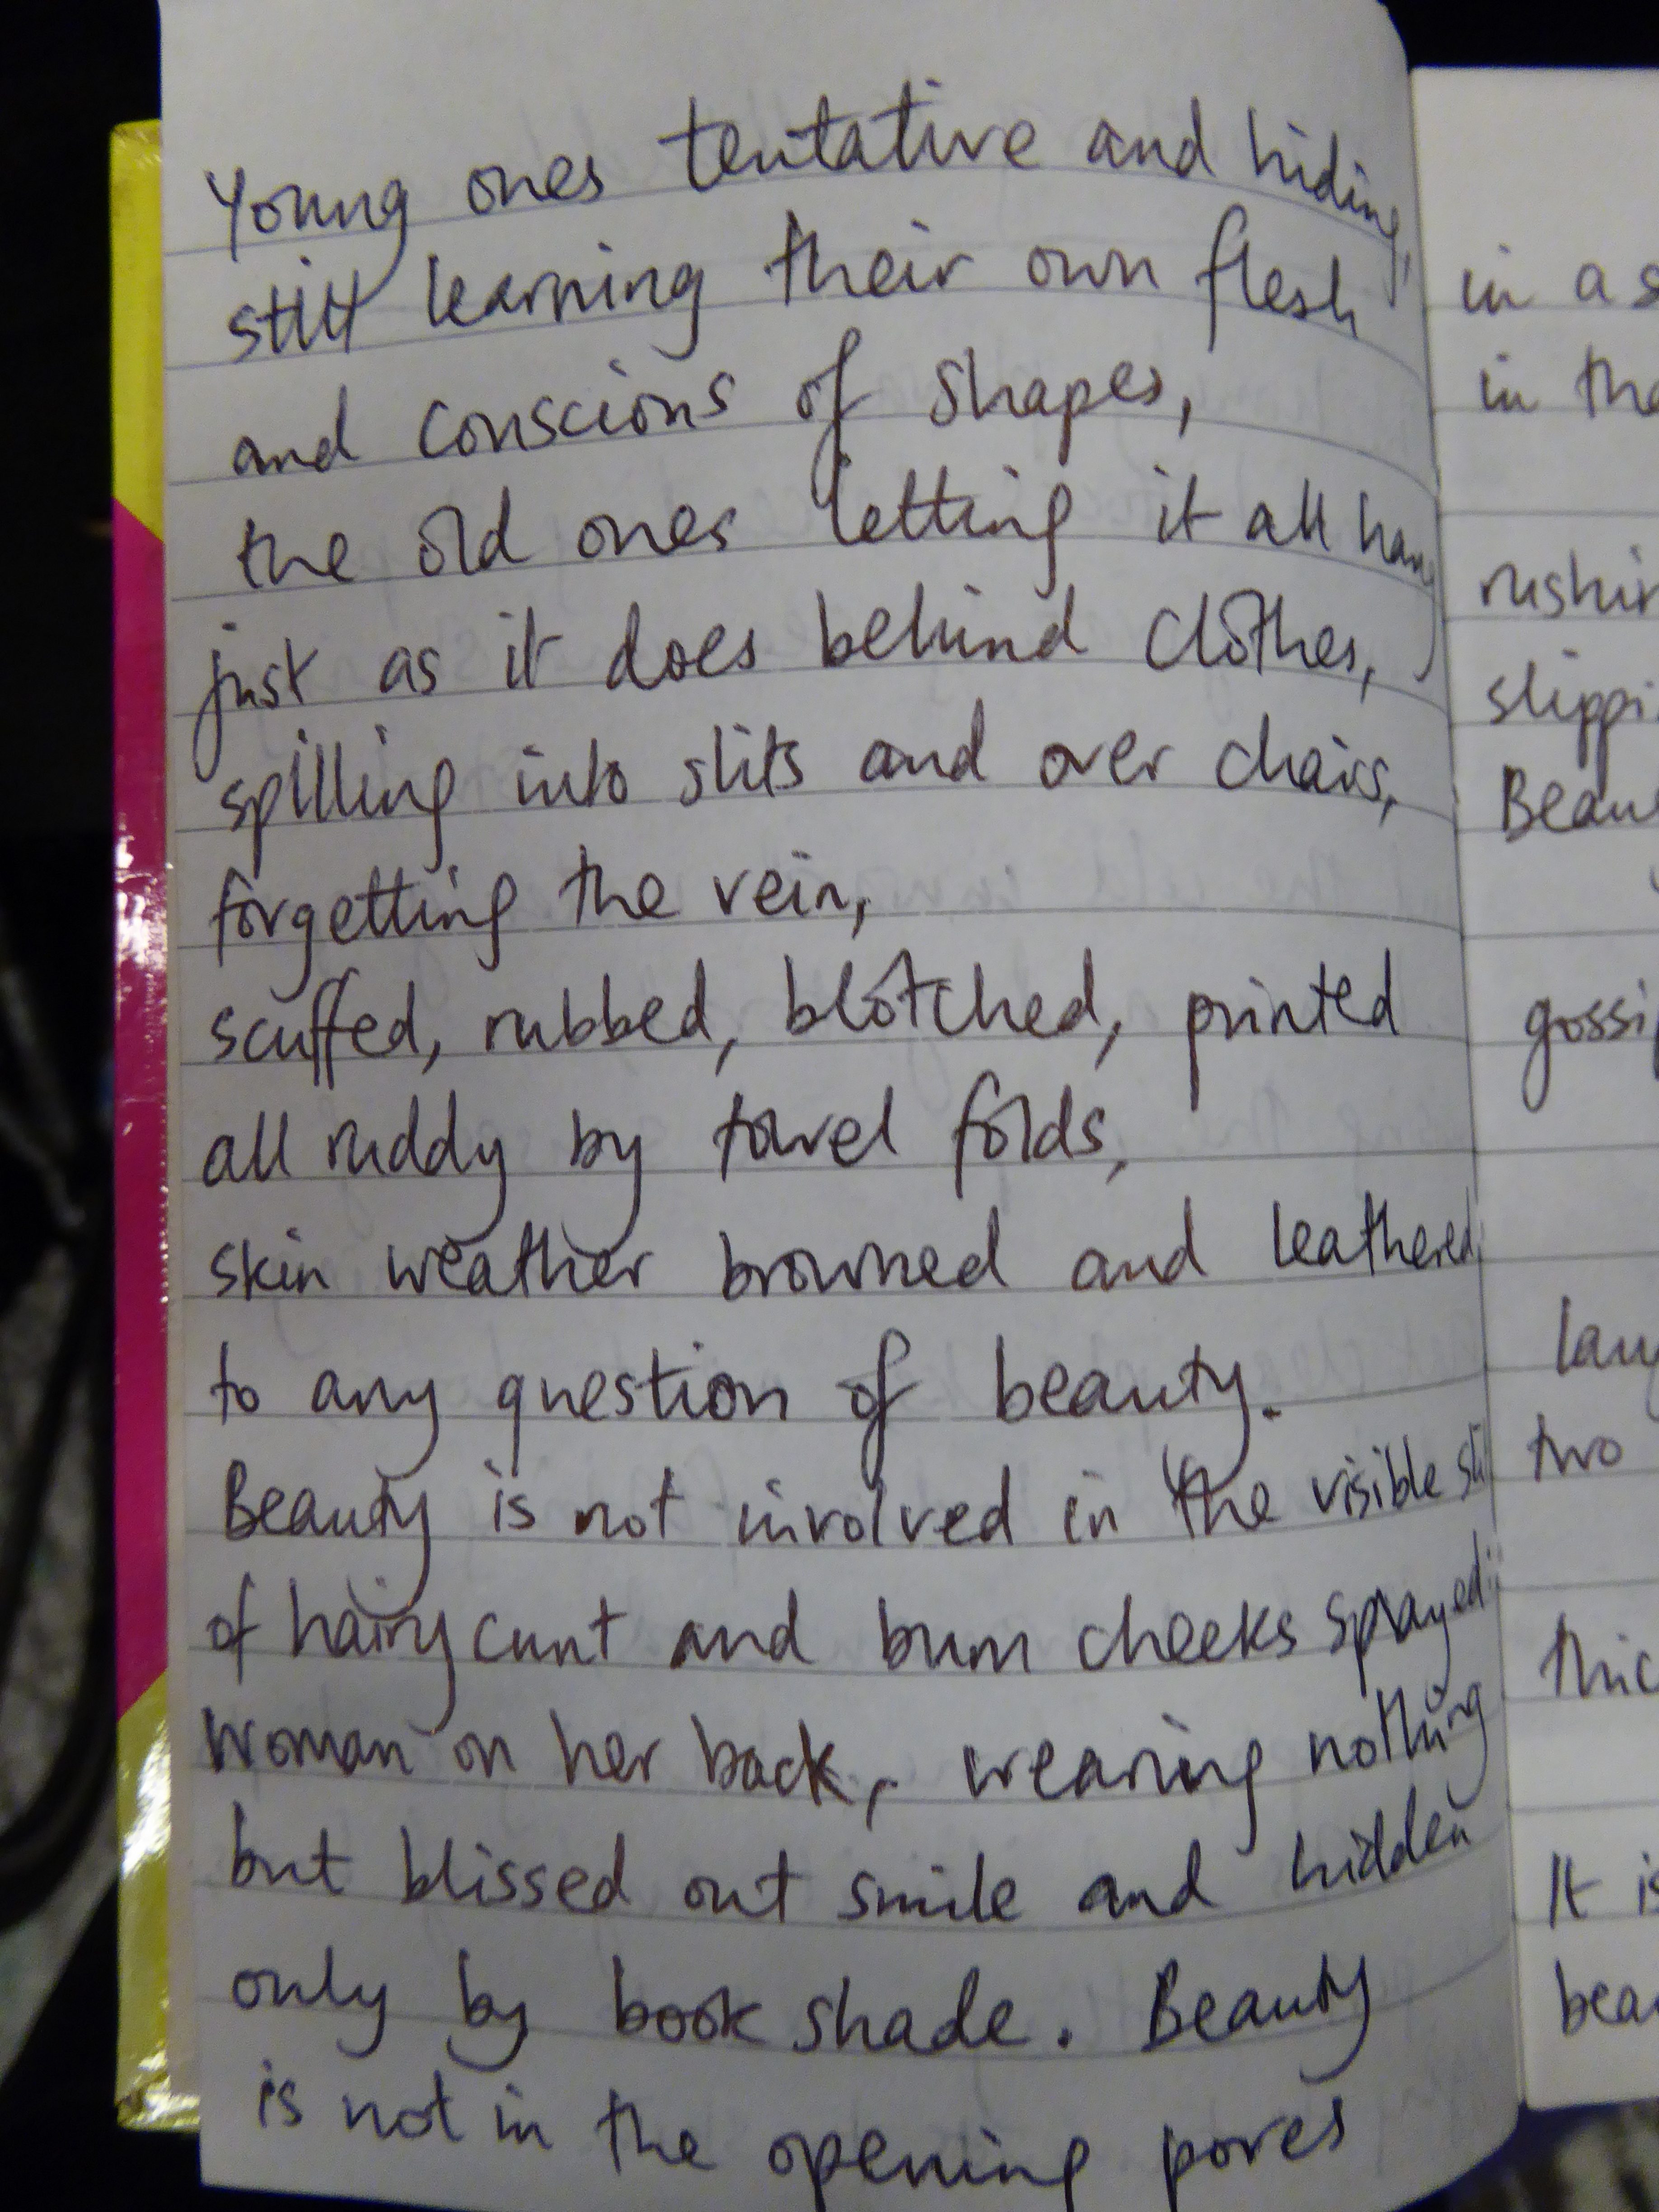 Young ones tentative and hiding,
still learning their own flesh
and conscious of shapes,
the old ones letting it all hang
just as it does behind clothes,
spilling into slits and over chairs,
forgetting the vein,
scuffed, rubbed, blotched, printed
all ruddy by towel folds,
skin weather browned and leathered
to any question of beauty.
Beauty is not involved in the visible
of hairy cunt and bum cheeks sprayed
woman on her back, wearing nothing
but blissed out smile and hidden
only by book shade. Beauty
is not in the opening pores
in a
in
slippi
gossi
two
It is